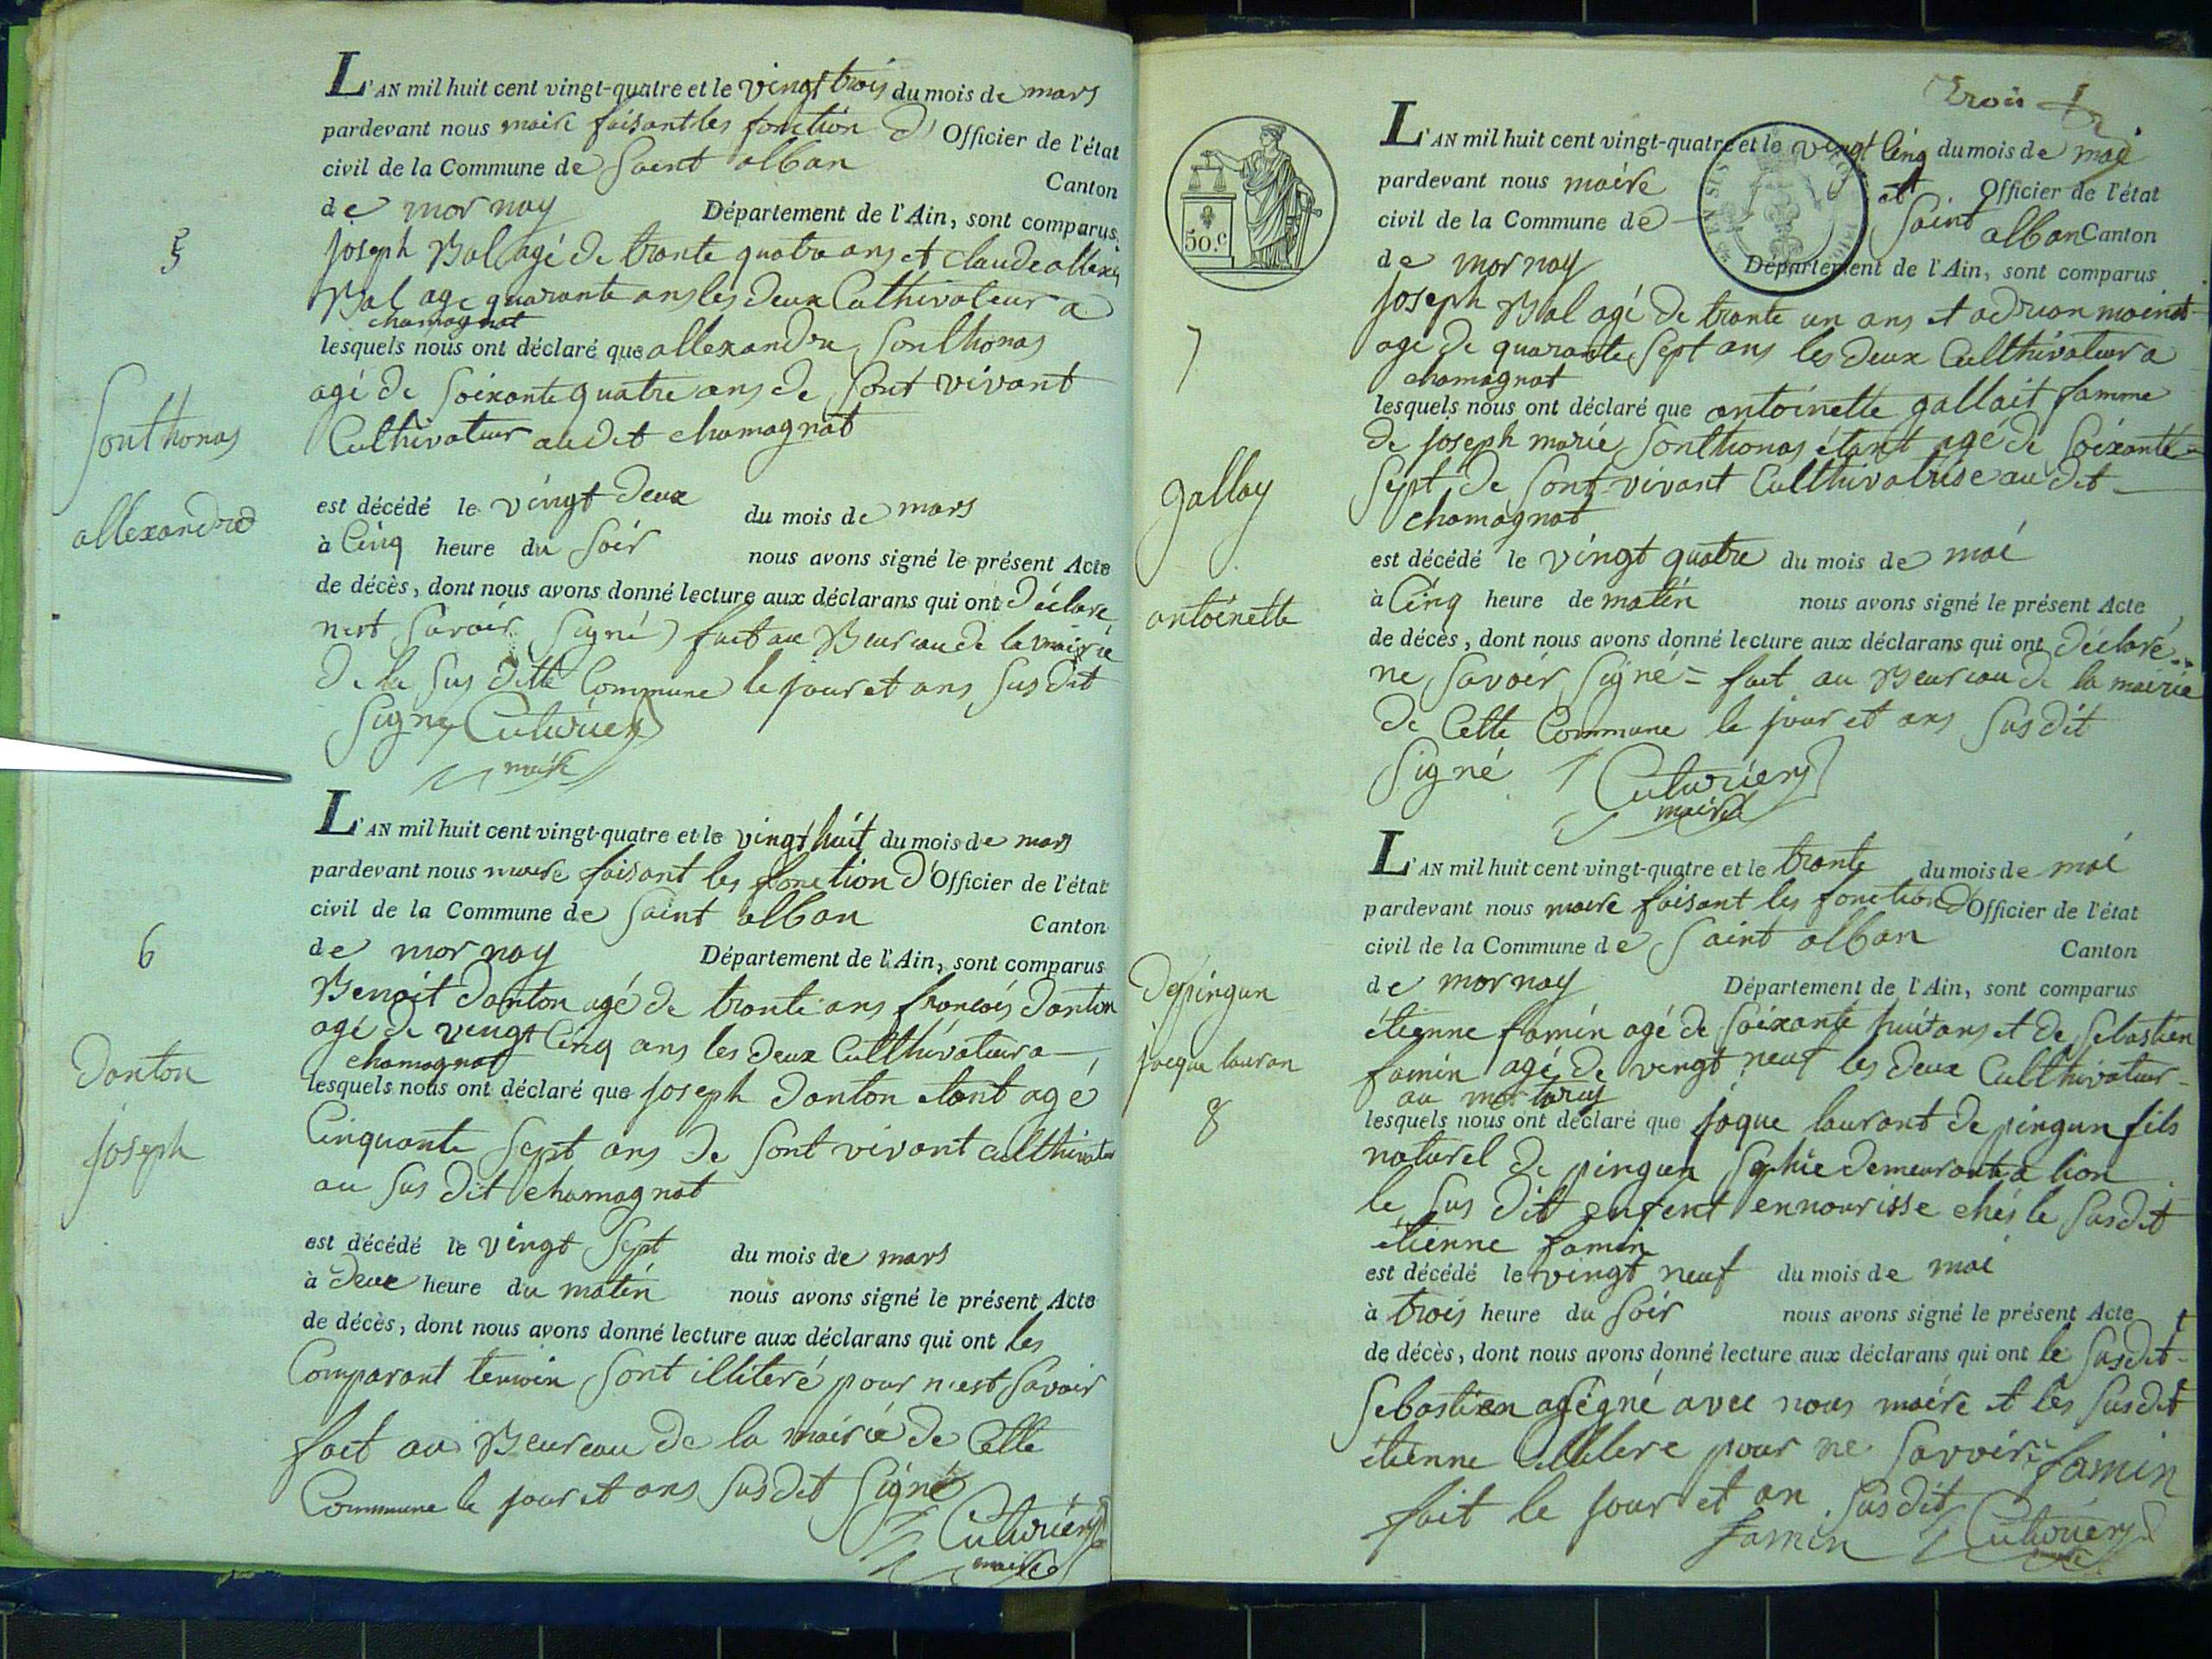 L'AN mil huit cent vingt-quatre et le vingt trois du mois de mars
pardevant nous maire faisant les fonction d' Officier de l'état
civil de la Commune de Saint alban Canton
de mornay Département de l'Ain, sont comparus
joseph Bal agé de trante quatre ans et claude allexis
Bal age quarante ans les deux Culthivateur a
chamagnat
lesquels nous ont déclaré que allexandre Sonthonas
agé de Soixante quatre ans de Sont vivant
Culthivateur audit chamagnat
est décédé le vingt deux du mois de mars
à Cinq heure du Soir nous avons signé le présent Acte
de décès, dont nous avons donné lecture aux déclarans qui ont déclaré
n'est Savoir Signé) fait au Beureau de la mairie
de la Sus ditte Commune le jour et ans Susdit
Signé Cuturier
maire
5
Sonthonas
allexandre
L'AN mil huit cent vingt-quatre et le vingt huit du mois de mars
pardevant nous maire faisant les fonction d'Officier de l'état
civil de la Commune de Saint alban Canton
de mornay Département de l'Ain, sont comparus
Benoit Danton agé de trante ans francois Danton
agé de vingt Cinq ans les deux Culthivateur a
chamagnat
lesquels nous ont déclaré que joseph Danton etant agé
Cinquante Sept ans de Sont vivant culthivateur
au Sus dit chamagnat
est décédé le vingt Sept du mois de mars
à deux heure du matin nous avons signé le présent Acte
de décès, dont nous avons donné lecture aux déclarans qui ont les
Comparant temoin Sont illiteré pour n'est Savoir
fait au Beureau de la mairie de Cette
Commune le jour et ans Susdit Signé
Cuturier
maire
6
Danton
joseph
trois
50.c
L'AN mil huit cent vingt-quatre et le vingt Cinq du mois de mai
pardevant nous maire et Officier de l'état
civil de la Commune de Saint alban Canton
de mornay Département de l'Ain, sont comparus
joseph Bal agé de trante un ans et adrian moinat
age de quarante Sept ans les deux Culthivateur a
chamagnat
lesquels nous ont déclaré que antoinette gallait famme
de joseph marie Sonthonas étant agé de Soixante
Sept de Sont vivant Culthivatrise au dit
chamagnat
est décédé le vingt quatre du mois de mai
à Cinq heure de matin nous avons signé le présent Acte
de décès, dont nous avons donné lecture aux déclarans qui ont déclaré
ne Savoir Signé = fait au Beureau de la mairie
de Cette Commune le jour et ans Susdit
Signé Cuturier
maire
7
gallay
antoinette
L'AN mil huit cent vingt-quatre et le trante du mois de mai
pardevant nous maire faisant les fonction d'Officier de l'état
civil de la Commune de Saint alban Canton
de mornay Département de l'Ain, sont comparus
étienne famin agé de Soixante huit ans et de Sebastien
famin agé de vingt neuf les deux Culthivateur
au
lesquels nous ont déclaré que jaque laurant depingun fils
naturel de pingun Sophie demeurante a lion
le Sus dit enfent ennourisse chés le Susdit
étienne famin
est décédé le vingt neuf du mois de mai
à trois heure du Soir nous avons signé le présent Acte
de décès, dont nous avons donné lecture aux déclarans qui ont le Susdit
Sebastien a Signé avec nous maire et les Susdit
étienne pour ne Savoir famin
fait le jour et an Susdit
famin Cuturier
maire
depingun
jacque lauran
8